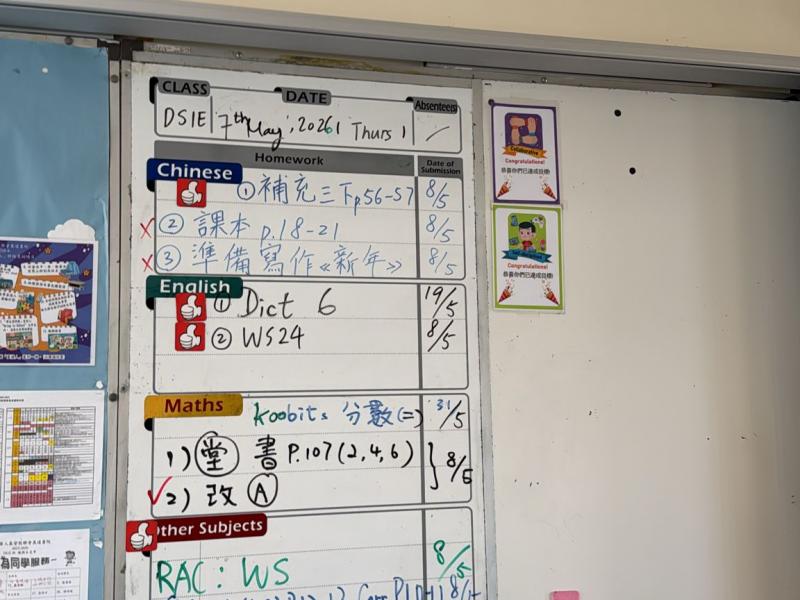 CLASS DATE Absentees
DS1E 7th May, 2026 Thurs
Homework Date of Submission
Chinese
① 補充三下p56-57 8/5
② 課本 p.18-21 8/5
③ 準備寫作《新年》 8/5
English
① Dict 6 19/5
② WS24 8/5
Maths
koobits 分數(二) 31/5
1) 堂 書 P.107 (2,4,6) } 8/5
2) 改 A
Other Subjects
RAC: WS 8/5
Collaborative
Congratulations!
恭喜你們已達成目標!
Congratulations!
恭喜你們已達成目標!
為同學服務